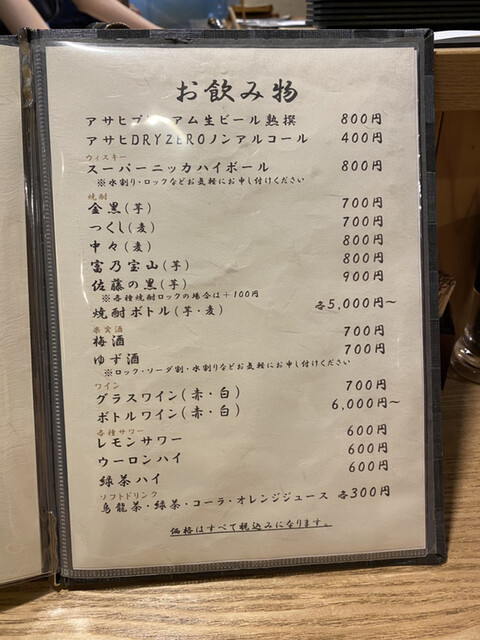 お飲み物
アサヒプレミアム生ビール熟撰 800円
アサヒDRYZEROノンアルコール 400円
ウィスキー
スーパーニッカハイボール 800円
※水割り・ロックなどお気軽にお申し付けください
焼酎
金黒(芋) 700円
つくし(麦) 700円
中々(麦) 800円
富乃宝山(芋) 800円
佐藤の黒(芋) 900円
※各種焼酎ロックの場合は+100円
焼酎ボトル(芋・麦) 各5,000円～
果実酒
梅酒 700円
ゆず酒 700円
※ロック・ソーダ割・水割りなどお気軽にお申し付けください
ワイン
グラスワイン(赤・白) 700円
ボトルワイン(赤・白) 6,000円～
各種サワー
レモンサワー 600円
ウーロンハイ 600円
緑茶ハイ 600円
ソフトドリンク
烏龍茶・緑茶・コーラ・オレンジジュース 各300円
価格はすべて税込みになります。